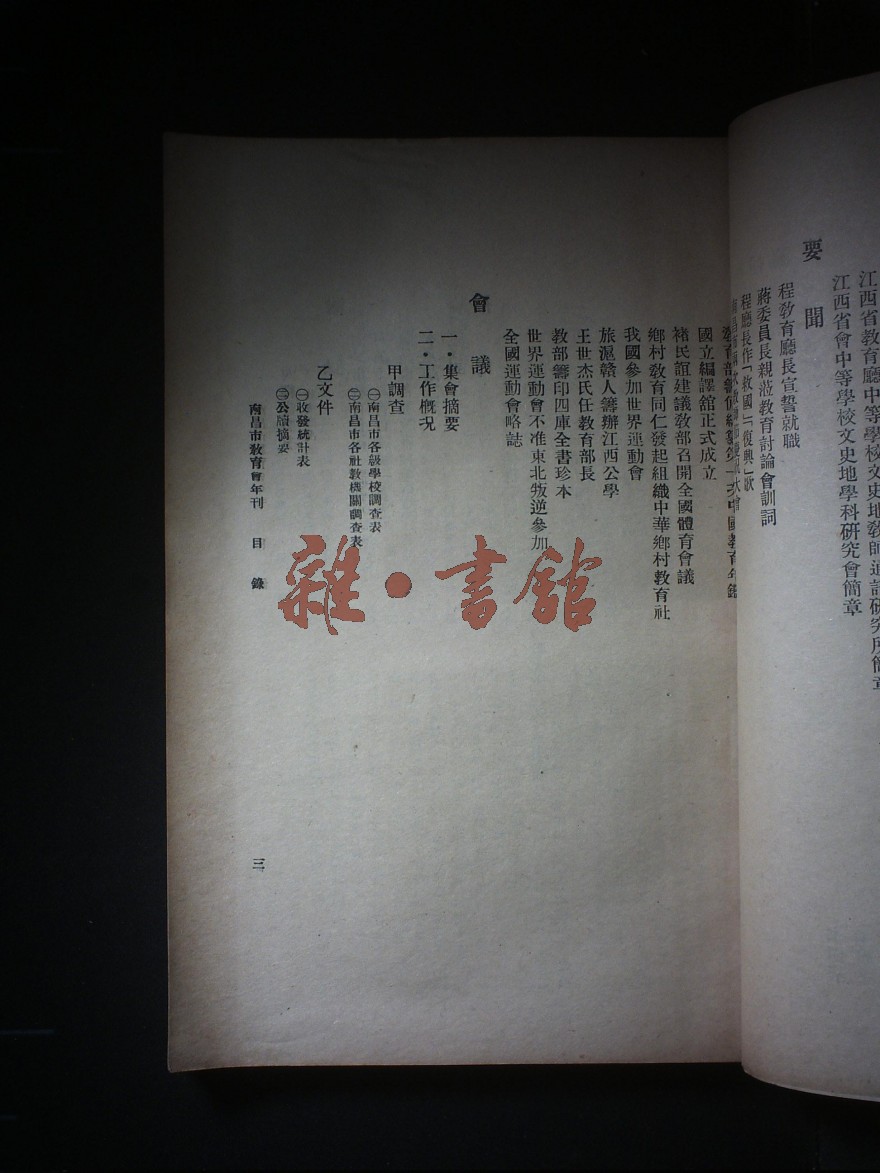 江西省教育廳中等學校文史地教師通訊研究所簡章
江西省會中等學校文史地學科研究會簡章
要聞
程教育廳長宣誓就職
蔣委員長親蒞教育討論會訓詞
程廳長作「救國」「復興」歌
南昌
大會
教育部
中國教育年鑑
國立編譯館正式成立
褚民誼建議教部召開全國體育會議
鄉村教育同仁發起組織中華鄉村教育社
我國參加世界運動會
旅滬贛人籌辦江西公學
王世杰氏任教育部長
教部籌印四庫全書珍本
世界運動會不准東北叛逆參加
全國運動會略誌
會議
一·集會摘要
二·工作概況
甲調查
㊀南昌市各級學校調查表
㊁南昌市各社教機關調查表
乙文件
㊀收發統計表
㊁公牘摘要
南昌市教育會年刊 目錄
三
雜·書館